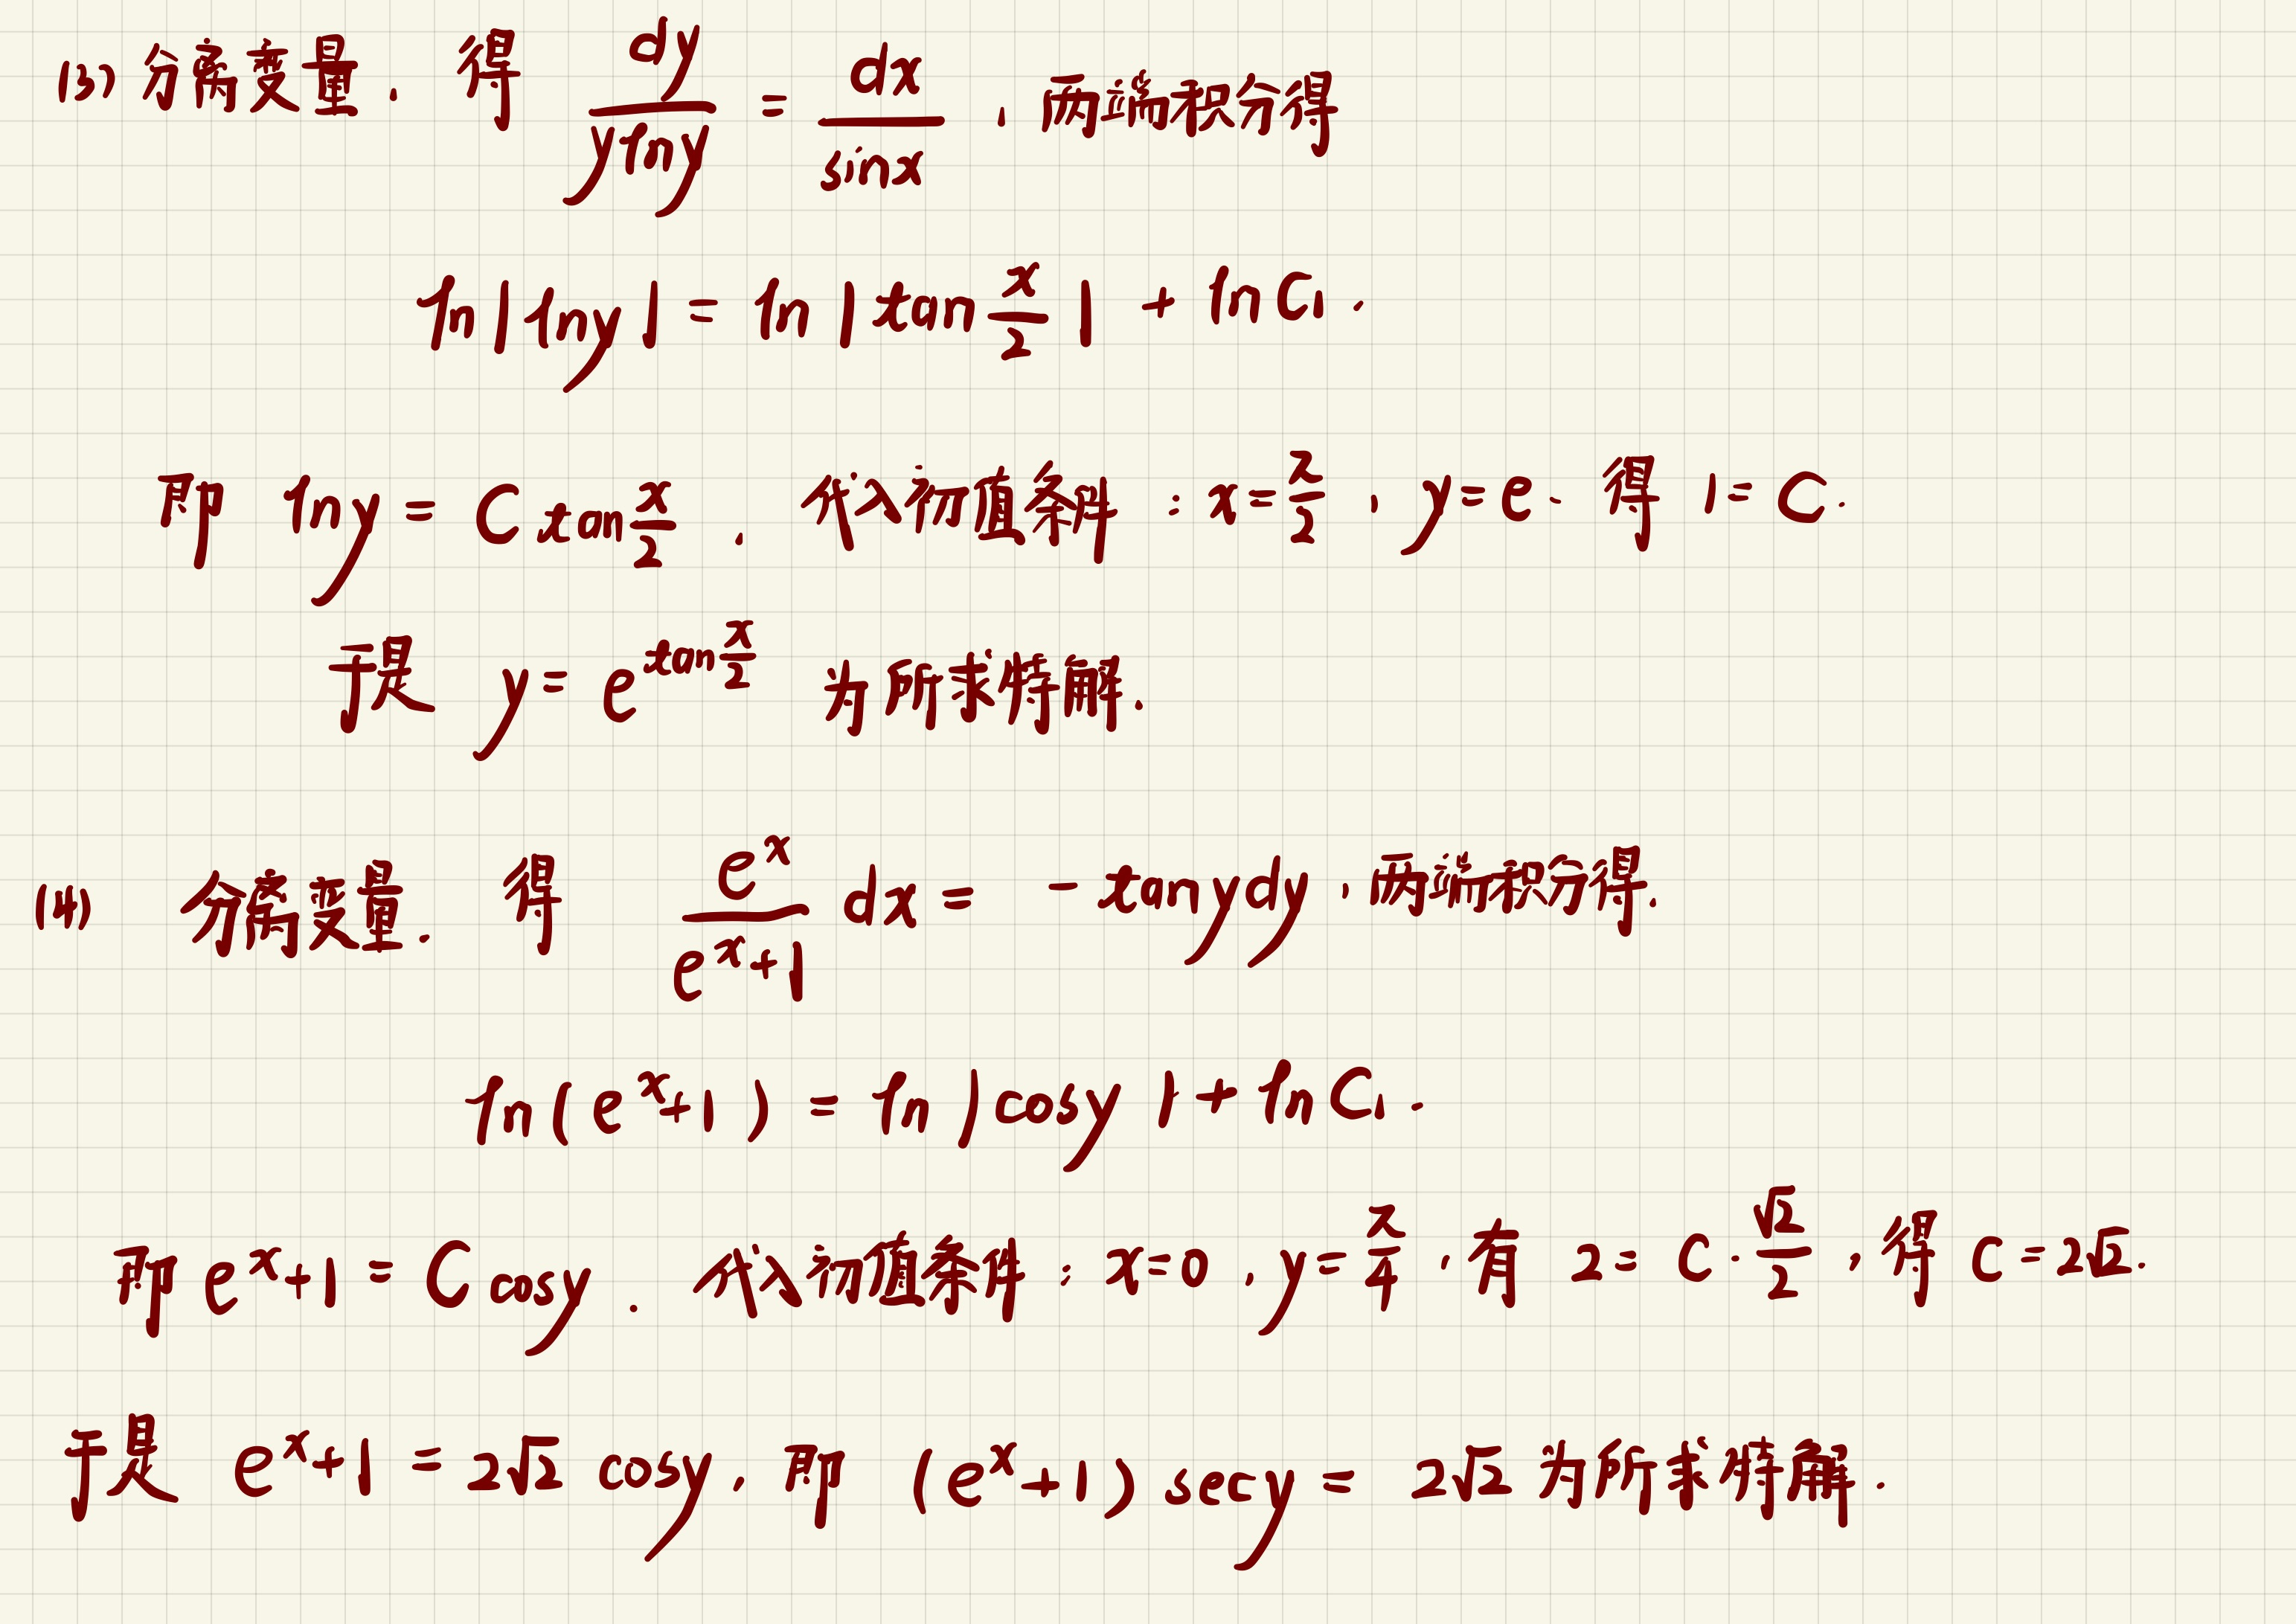 (3) 分离变量, 得 dy/(ylny) = dx/sinx, 两端积分得
ln|lny| = ln|tan x/2| + lnC₁.
即 lny = C tan x/2. 代入初值条件: x=π/2, y=e. 得 1=C.
于是 y=e^(tan x/2) 为所求特解.
(4) 分离变量. 得 e^x/(e^x+1) dx = -tanydy, 两端积分得.
ln(e^x+1) = ln|cosy|+lnC₁.
即 e^x+1 = C cosy. 代入初值条件: x=0, y=π/4, 有 2=C·√2/2, 得 C=2√2.
于是 e^x+1 = 2√2 cosy, 即 (e^x+1) secy = 2√2 为所求特解.